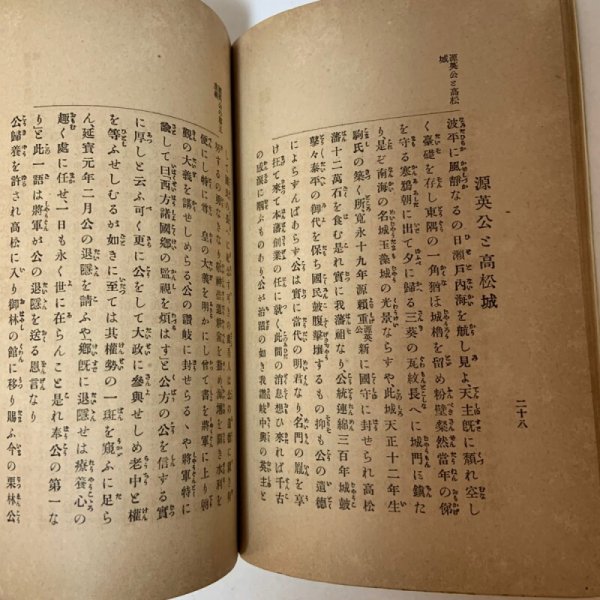 源英公と高松城
源英公と高松城
二十八
波平に風靜なるの日瀨戸内海を航し見よ天主旣に頽れ空し
く臺礎を存し東隅の一角猶は城櫓を留め粉壁粲然當年の俤
を守る寒鴉朝に出て夕に歸る三葵の瓦紋長へに城門に鎭た
り是ぞ南海の名城玉藻城の光景ならすや此城天正十二年生
駒氏の築く所寛永十九年源賴重公源英新に國守に封せられ高松
藩十二萬石を食む是れ實に我藩祖なり公統連綿三百年城皷
鼕々泰平の御代を保ち國民皷腹擊壤するもの抑も公の遺德
によらすんばあらす公は實に當代の明君なり名門の胤を享
け抂て來て本藩創業の任に就く此間の消息想ひ來れば千古
の感慨に咽ぶものあり公が治蹟の如き我讃岐中興の英主と
便にし特に尊 皇の大義を明かにし曾て書を將軍に上り朝
覲の大義を議せしめらる公の讃岐に封せらるヽや將軍特に
諭して曰西方諸國鄕の監視を煩はすと公方の公を信する實
に厚しと云ふ可く更に公をして大政に參與せしめ老中と權
を等ふせしむるが如きに至ては其權勢の一斑を窺ふに足ら
ん延寶元年二月公の退隱を請ふや鄕旣に退隱せは療養心の
趣く處に任せ一日も永く世に在らんこと是れ奉公の第一な
りと此一語は將軍が公の退隱を送る恩言なり
公歸養を許され高松に入り御林の館に移り賜ふ今の栗林公